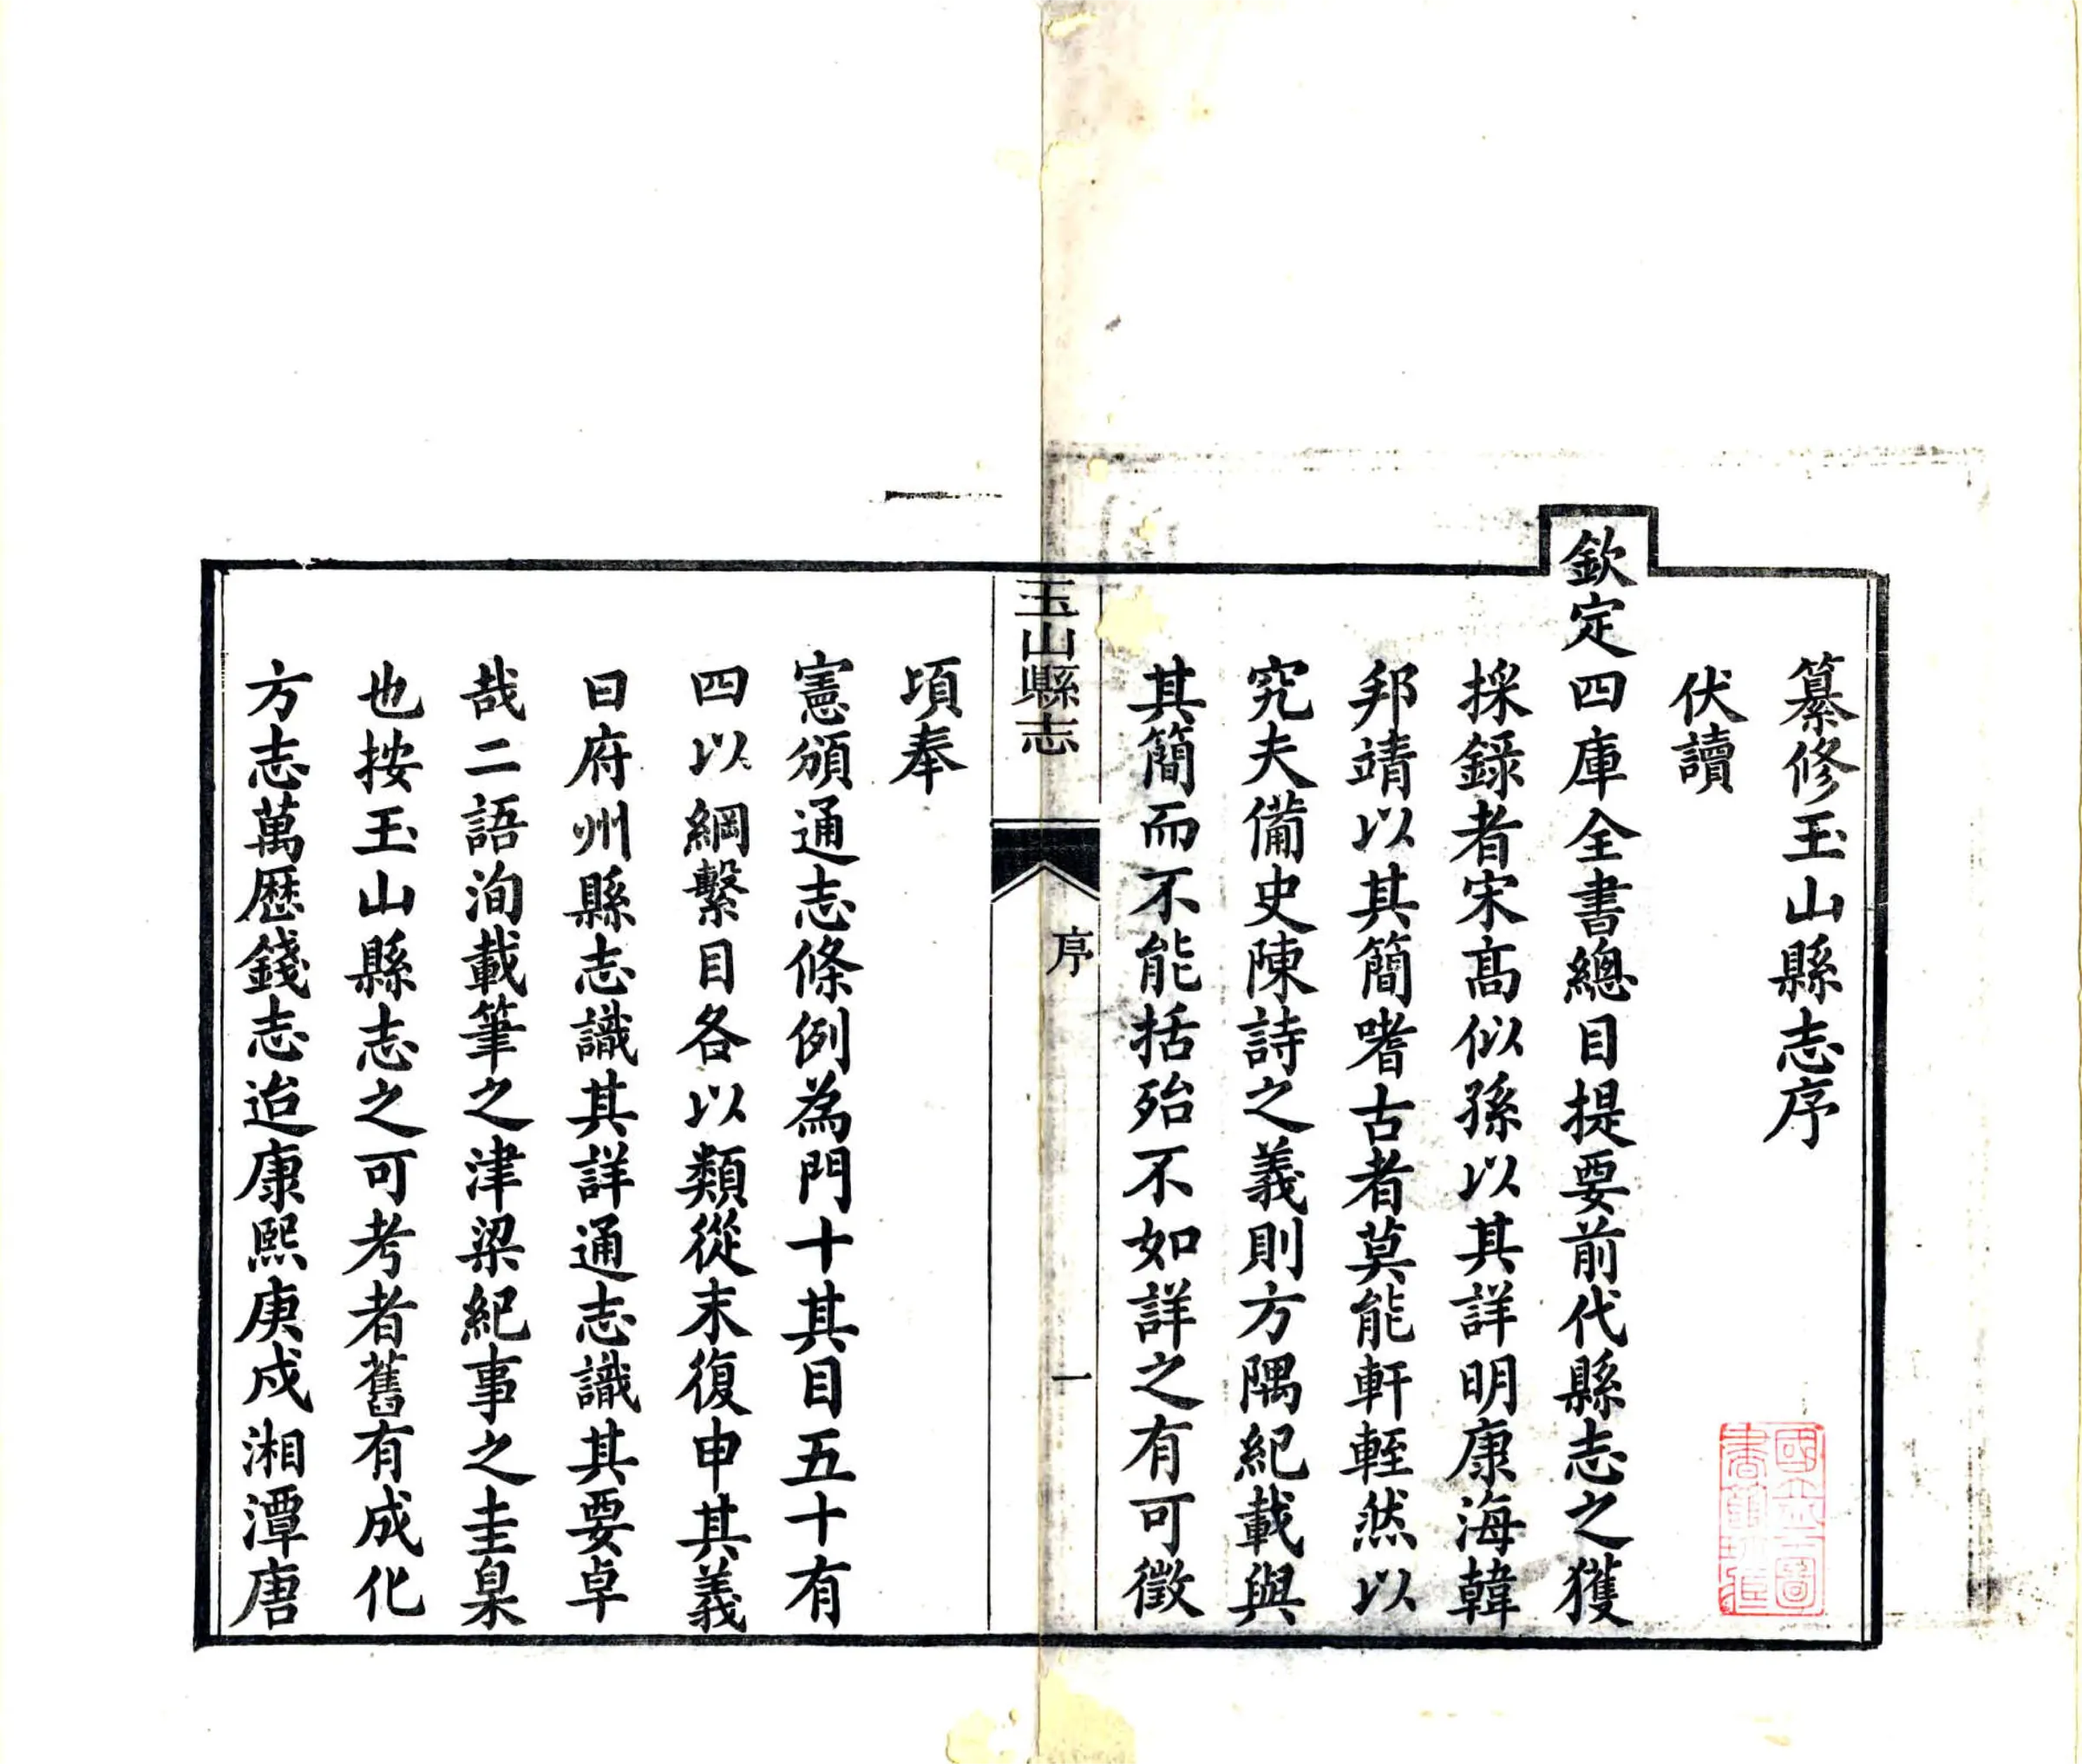 纂修玉山縣志序
伏讀
欽定四庫全書總目提要前代縣志之獲
採録者宋髙似孫以其詳明康海韓
邦靖以其簡嗜古者莫能軒輊然以
究夫備史陳詩之義則方隅紀載與
其簡而不能括殆不如詳之有可徵
玉山縣志
序
一
頃奉
憲頒通志條例為門十其目五十有
四以綱繫目各以類從末復申其義
曰府州縣志識其詳通志識其要卓
哉二語洵載筆之津梁紀事之圭臬
也按玉山縣志之可考者舊有成化
方志萬歷錢志迨康熙庚戌湘潭唐